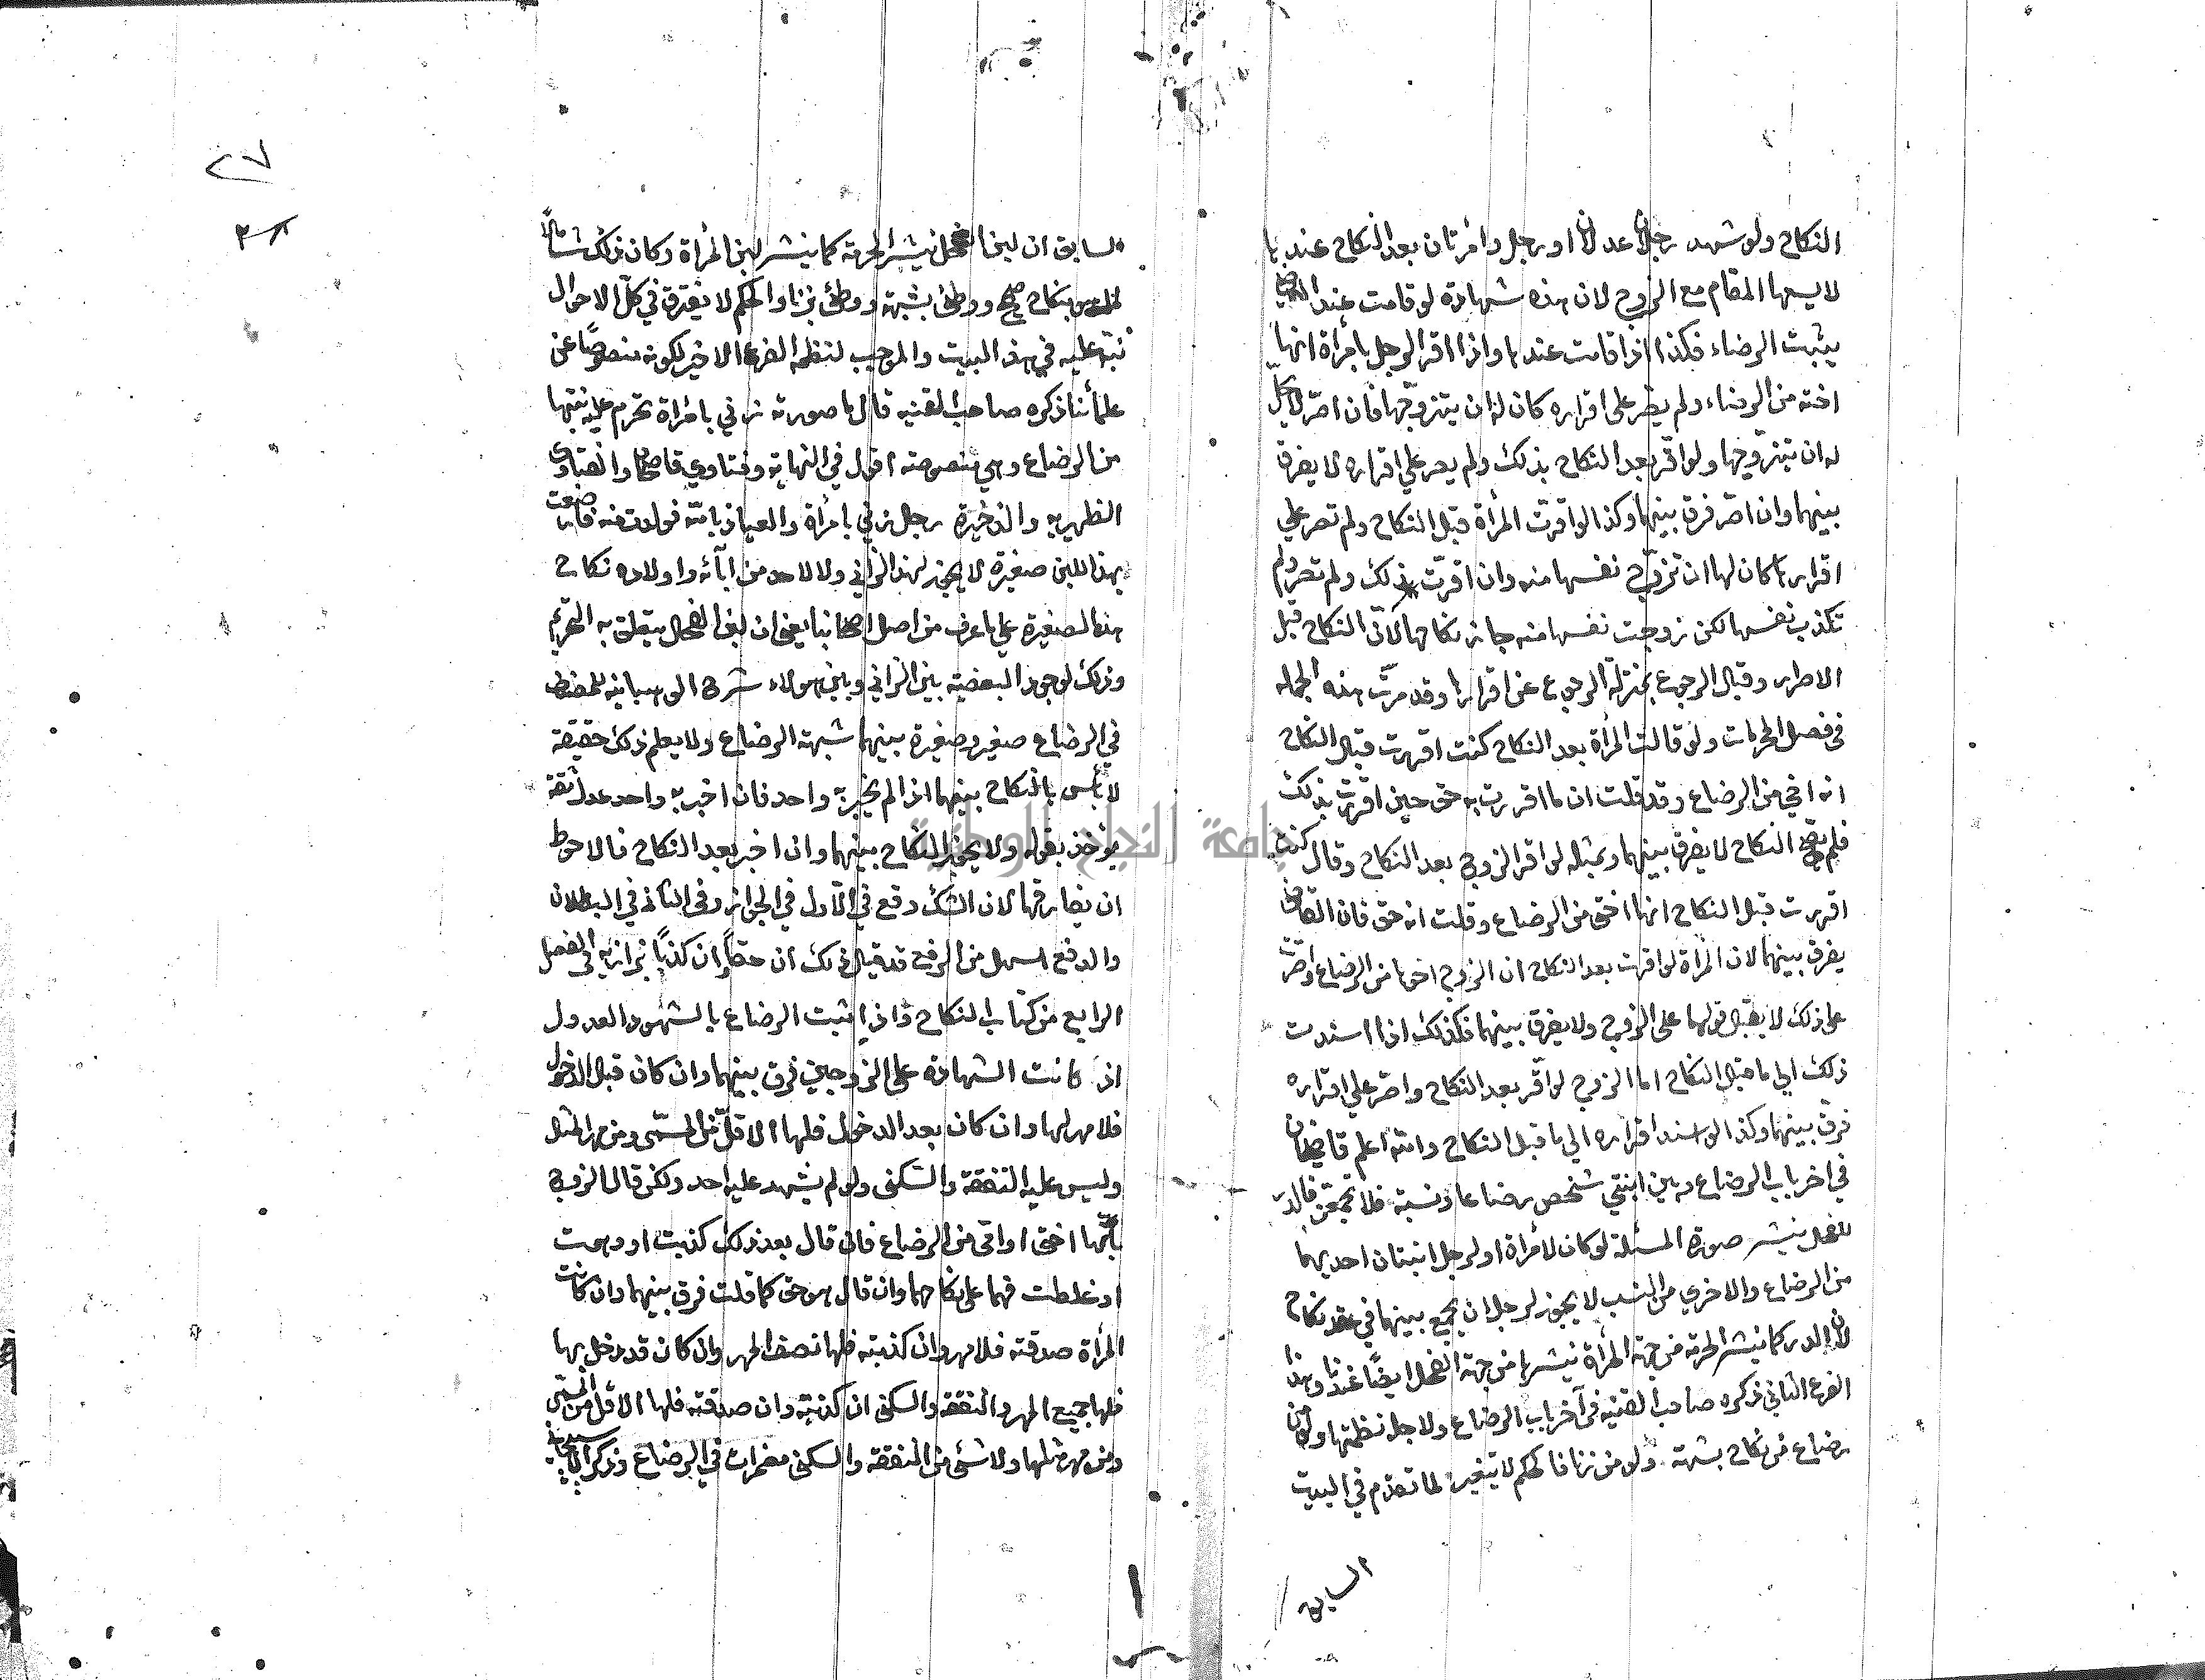 النكاح ولو شهد رجلان عدلان او رجل وامرأتان بعد النكاح عندها
لا يسعها المقام مع الزوج لان هذه شهادة لو قامت عند القاضي
يثبت الرضاع فكذا اذا قامت عندها واذا اقر الرجل بامرأة انها
اخته من الرضاع ولم يصر على اقراره كان له ان يتزوجها فان اصر لا يحل
له ان يتزوجها ولو اقر بعد النكاح بذلك ولم يصر على اقراره لا يفرق
بينهما وان اصر فرق بينهما وكذا لو اقرت المرأة قبل النكاح ولم تصر على
اقرارها كان لها ان تزوج نفسها منه وان اقرت بذلك ولم تصر ولم
تكذب نفسها لكن زوجت نفسها منه جاز نكاحها لان النكاح قبل
الاصرار وقبل الرجوع بمنزلة الرجوع عن اقرارها وقد مرت هذه الجملة
في فصل المحرمات ولو قالت المرأة بعد النكاح كنت اقررت قبل النكاح
انه اخي من الرضاع وقد قلت ان ما اقررت به حق حين اقررت بذلك
فلم يصح النكاح لا يفرق بينهما وبمثله لو اقر الزوج بعد النكاح وقال كنت
اقررت قبل النكاح انها اختي من الرضاع وقلت انه حق فان القاضي
يفرق بينهما لان المرأة لو اقرت بعد النكاح ان الزوج اخوها من الرضاع واصرت
على ذلك لا يقبل قولها على الزوج ولا يفرق بينهما فكذلك اذا اسندت
ذلك الى ما قبل النكاح اما الزوج لو اقر بعد النكاح واصر على اقراره
فرق بينهما وكذا لو اسند اقراره الى ما قبل النكاح والله اعلم قاضيخان
في اخر باب الرضاع وبين ابنتي شخص رضاعا ونسبة فلا تجمعن فالدر
للفحل ينشر صورة المسئلة لو كان لامرأة او لرجل ابنتان احديهما
من الرضاع والاخرى من النسب لا يجوز لرجل ان يجمع بينهما في عقد نكاح
لان الدر كما ينشر الحرمة من جهة المرأة ينشرها من جهة الفحل ايضا عندنا وهذا
الفرع الثاني ذكره صاحب القنية في آخر باب الرضاع ولاجله نظمتها ولو من
رضاع من نكاح بشبهة ولو من زنا فالحكم لا يتغير لما تقدم في البيت
السابق
٢٧
السابق ان لبن الفحل ينشر الحرمة كما ينشر لبن المرأة وكان ذلك شاملا
بنكاح صحيح ووطئ بشبهة ووطئ بزنا والحكم لا يفترق في كل الاحوال
نبه عليه في هذا البيت والموجب لنظمه الفرع الاخير لكونه منصوصا عن
علمائنا ذكره صاحب القنية قال ما صورته زنى بامرأة تحرم عليه بنتها
من الرضاع وهي منصوصة اقول في النهاية وفتاوي قاضيخان والفتاوى
الظهيرية والذخيرة رجل زنى بامرأة والعياذ بالله فولدت منه فارضعت
بهذا اللبن صغيرة لا يجوز لهذا الزاني ولا لاحد من ابآئه واولاده نكاح
هذه الصغيرة على ما عرف من اصل اصحابنا يعني ان لبن الفحل يتعلق به التحريم
وذلك لوجود البعضية بين الزاني وبين هولاء شرح الوهبانية للمصنف
في الرضاع صغير وصغيرة بينهما شبهة الرضاع ولا يعلم ذلك حقيقة
لا بأس بالنكاح بينهما اذا لم يخبر به واحد فان اخبر به واحد عدل ثقة
يؤخذ بقوله ولا يجوز النكاح بينهما وان اخبر بعد النكاح فالاحوط
ان يفارقها لان الشك وقع في الاول في الجواز وفي الثاني في البطلان
والدفع اسهل من الرفع قد قيل ذلك ان حقا وان كذبا بزازية في الفصل
الرابع من كتاب النكاح واذا ثبت الرضاع بالشهود العدول
اذا كانت الشهادة على الزوجين فرق بينهما وان كان قبل الدخول
فلا مهر لها وان كان بعد الدخول فلها الاقل من المسمى ومن مهر المثل
وليس عليه النفقة والسكنى ولو لم يشهد عليه احد ولكن قال الزوج
بانها اختي او امي من الرضاع فان قال بعد ذلك كذبت او وهمت
او غلطت فهما على نكاحهما وان قال هو حق كما قلت فرق بينهما وان كانت
المرأة صدقته فلا مهر وان كذبته فلها نصف المهر وان كان قد دخل بها
فلها جميع المهر والنفقة والسكنى ان كذبته وان صدقته فلها الاقل من المسمى
ومن مهر مثلها ولا شئ من النفقة والسكنى مضمرات في الرضاع وذكر
جامعة النجاح الوطنية